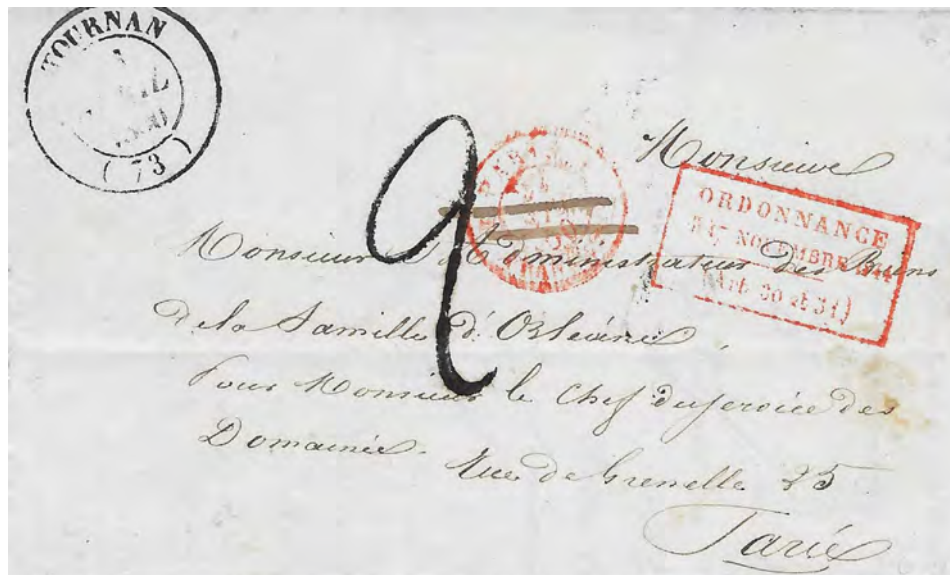 TOURNAN
(73)
2
Monsieur
ORDONNANCE
DU 17 NOVEMBRE
(Art. 30 et 31)
Monsieur l'Administrateur des Biens
de la famille d'Orléans
Pour Monsieur le Chef du service des
Domaines.
Rue de Grenelle 25
Paris